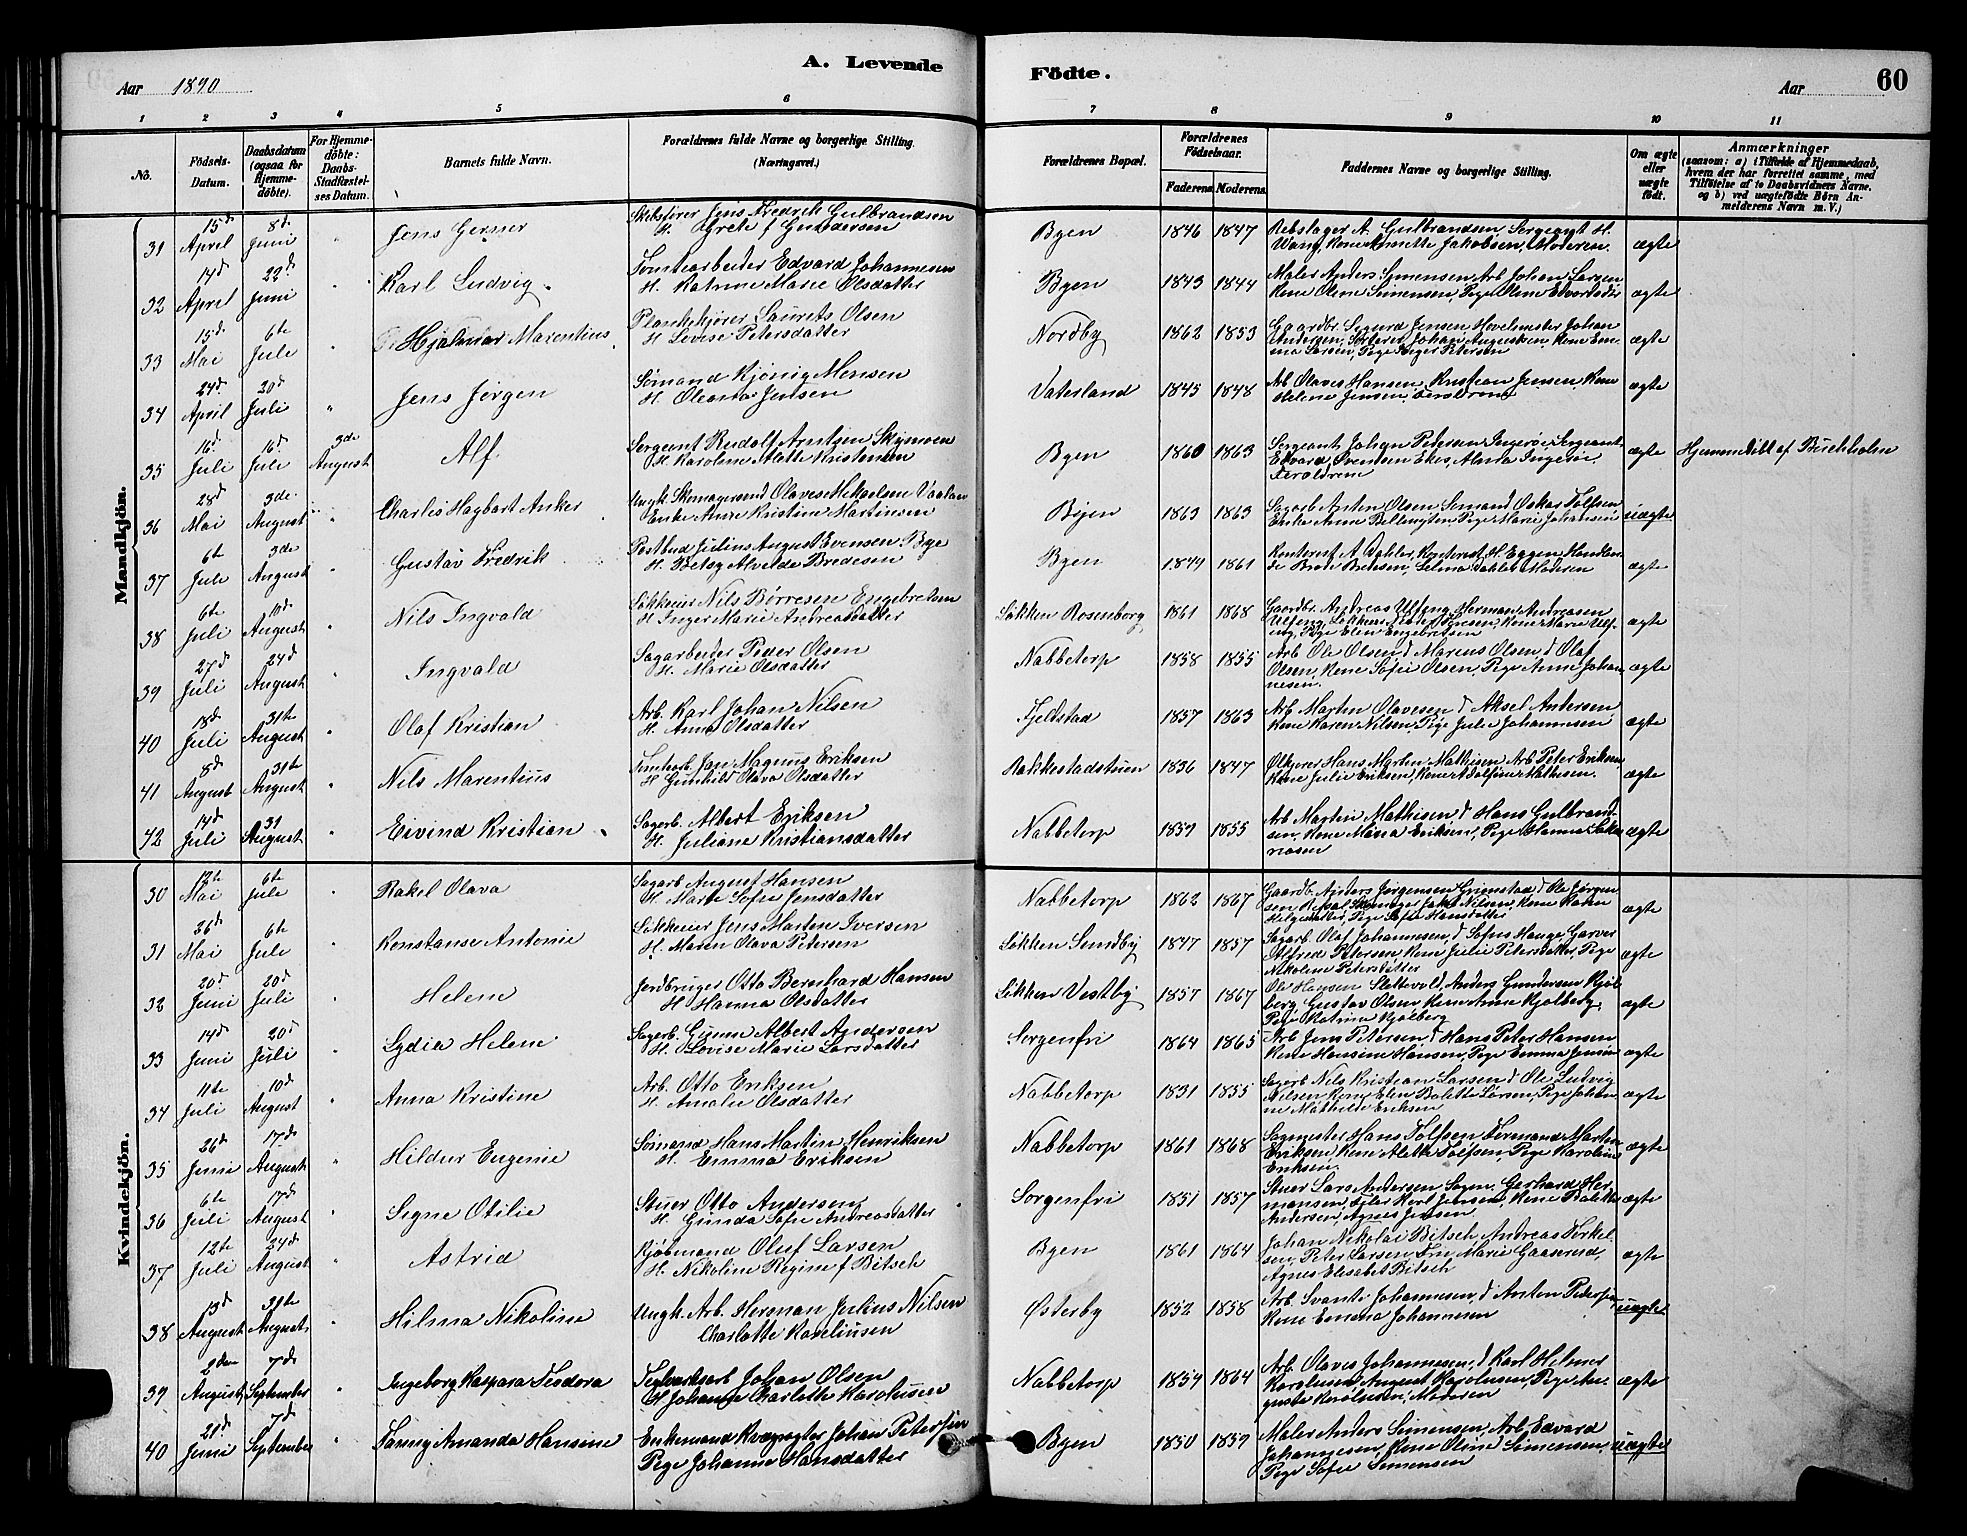 A. Levende
Födte.
60
Aar 1890
Aar
1 2 3 4 5 6 7 8 9 10 11
No.
Födsels-Datum.
Daabsdatum (ogsaa for Hjemme-döbte).
For Hjemme-döbte: Daabs-Stadfæstel-ses Datum.
Barnets fulde Navn.
Forældrenes fulde Navne og borgerlige Stilling. (Næringsvei.)
Forældrenes Bopæl.
Forældrenes Födselsaar.
Faderens. Moderens.
Faddernes Navne og borgerlige Stilling.
Om ægte eller uægte födt.
Anmærkninger
(saasom: a) i Tilfælde af Hjemmedaab, hvem der har forrettet samme, med Tilföielse af to Daabsvidners Navne, og b) ved uægtefödte Börn An-melderens Navn m. V.)
Mandkjön.
31 15d April 8d Juni " Jens Gerner
Skibsfører Jens Fredrik Gulbrandsen
H. Grete f Gundersen
Byen 1846 1847
Rebslager A. Gulbrandsen, Sergegyt H.
Wang, Kone Annette Jakobsen, Moderen. ægte
32 14d April 22d Juni " Karl Ludvig
Tomtearbeider Edvard Johannesen
H. Katrine Marie Olsdatter
Byen 1843 1844
Maler Anders Simensen, Arb. Johan Larsen
Kone Oline Simensen, Pige Oline Edvardsdtr ægte
33 15d Mai 6te Juli " Hjalmar Marentius
Plankekjører Laurets Olsen
H. Lovise Petersdatter
Nordby 1862 1853
Gaardbr. Sigurd Jensen Hovelmester Johan
Andersen, Sorterer Johan Augustsen, Kone Em-
ma Larsen, Pige Inger Petersen ægte
34 24d April 20d Juli " Jens Jørgen
Sømand Kjønig Monsen
H. Oleana Jensen
Vaterland 1845 1848
Arb Olaves Hansen, Kristian Jensen, Kone
Helene Jensen, Foreldrene ægte
35 16d Juli 16d Juli 3de August Alf
Sergeant Rudolf Arntzen Skjønnen
H. Karoline Alette Kristensen
Byen 1860 1863
Sergeant Johan Petersen Ingerøe, Sergeant
Edvard Svendsen Ekes, Alma Ingerøe,
Foreldrene ægte Hjemmedøbt af Buchholm
36 28d Mai 3de August " Charles Hagbart Anker
Ungk. Skomagersvend Olaves Mikaelsen Vaalan
Enke Anne Kristine Martinsen
Byen 1863 1863
Sagarb Anten Olsen Sømand Oskar Tolfsen
Enke Anne Bellington Pige Marie Johansen uægte
37 6te Juli 3de August " Gustav Fredrik
Postbud Julius August Evensen Bye
H. Betsy Alvilde Bredesen
Byen 1849 1861
Kontorist A. Dahler, Kontorist H. Eggen, Handlen-
de Brede Bredesen, Selma Dahler Moderen ægte
38 6te Juli 10d August " Nils Ingvald
Løkkeeier Nils Børresen Engebretsen
H Inger Marie Andreasdatter
Løkken Rosenborg 1861 1868
Gaardbr. Andreas Ulfeng, Herman Andreasen
Ulfeng, Kone Marie Ulf-
eng, Pige Elen Engebretsen ægte
39 27d Juli 24d August " Ingvald
Sagarbeider Peder Olsen
H. Marie Olsdatter
Nabbetorp 1858 1855
Arb. Ole Olsen, d Marius Olsen, d Olaf
Olsen, Kone Sofie Olsen, Pige Anne Johan-
nesen. ægte
40 18d Juli 31te August " Olaf Kristian
Arb. Karl Johan Nilsen
H. Anna Olsdatter
Fjeldstad 1857 1863
Arb Martin Olavesen d Aksel Andersen
Kone Karen Nilsen, Pige Julie Johannesen ægte
41 8d August 31te August " Nils Marentius
Tomtearb. Jan Magnus Eriksen
H Gunhild Olava Olsdatter
Rakkestadstuen 1836 1847
Ølkjører Hans Martin Mathisen, Arb Peter Eriksen
Kone Julie Eriksen, Kone Adolfine Mathisen. ægte
42 14d Juli 31 August " Eivind Kristian
Sagarb. Albert Eriksen
H. Juliane Kristiansdatter
Nabbetorp 1859 1855
Arb Martin Mathisen, d Hans Gulbrand-
sen, Kone Maria Eriksen, Pige Hanna Saka-
riasen ægte
Kvindekjön.
30 12te Mai 6te Juli " Rakel Olava
Sagarb August Hansen
H. Marte Sofie Jensdatter
Nabbetorp 1862 1867
Gaardb. Anders Jørgensen Grimstad, d Ole Jørgen-
sen Skomager Jakob Nilsen, Kone Karen
Helgesdatter, Pige Sofie Hansdatter ægte
31 26d Mai 6te Juli " Konstanse Antonie
Løkkeeier Jens Martin Iversen
H. Maren Olava Petersen
Løkken Sundby 1847 1857
Sagarb. Olaf Johannesen, d Sofus Hauge Garver
Alfred Petersen Kone Julie Petersdatter, Pige
Nikoline Petersdatter ægte
32 20d Juni 20d Juli " Helene
Jordbruger Otto Bernhard Hansen
H. Hanna Olsdatter
Løkken Vestby 1857 1867
Ole Hansen Slettevold, Anders Gundersen Kjøl-
berg Gustav Olsen Kone Anne Kjølberg,
Pige Katrine Kjølberg ægte
33 14d Juni 20d Juli " Lydia Helene
Sagarb. Gunne Albert Andersen
H. Lovise Marie Larsdatter
Sorgenfri 1864 1865
Arb Jens Petersen, d Hans Peter Hansen
Kone Hansine Hansen, Pige Emma Jensen ægte
34 11te Juli 10d August " Anna Kristine
Arb. Otto Eriksen
H. Amalie Olsdatter
Nabbetorp 1831 1855
Sagarb Nils Kristian Larsen d Ole Ludvig
Nilsen Kone Elen Bolette Larsen, Pige Johan-
ne Mathilde Eriksen ægte
35 26d Juni 17d August " Hildur Eugenie
Sømand Hans Martin Henriksen
H. Emma Eriksen
Nabbetorp 1861 1868
Sagmester Hans Tolfsen Formand Martin
Eriksen, Kone Alette Tolfsen, Pige Karoline
Eriksen. ægte
36 6te Juli 17d August " Signe Otilie
Stuer Otto Andersen
H. Gunda Sofie Andreasdatter
Sorgenfri 1851 1857
Stuer Lars Andersen Sagm. Gerhard Her-
mansen, Filer Karl Jensen, Kone Bolette
Andersen, Agnes Jensen ægte
37 12te Juli 24d August " Astrid
Kjøbmand Oluf Larsen
H. Nikoline Regine f Bitsch
Byen 1861 1864
Johan Nikolai Bitsch Andreas Torkel-
sen, Peter Larsen Fru Marie Gaaserud,
Agnes Elisabet Bitsch ægte
38 13d August 31te August " Hilma Nikoline
Ungk. Arb. Herman Julius Nilsen
Charlotte Karelinsen
Østerby 1852 1858
Arb. Svante Johannesen, d Anton Petersen
Kone Emma Johannesen uægte
39 2den August 7d September " Ingeborg Kaspara Teodora
Teglværksarb Johan Olsen
H Johanne Charlotte Karolusen
Nabbetorp 1854 1864
Arb. Olaves Johannesen, d Karl Helmer
Karolusen, August Karolusen, Pige Au-
guste Karolusen, Moderen ægte
40 21d Juni 7d September " Fanny Amanda Hansine
Enkemand Kvægrøgter Johan Petersen
Pige Johanne Hansdatter
Byen 1850 1859
Maler Anders Simensen, Arb. Edvard
Johannesen, Kone Oline Simensen,
Pige Sofie Simensen uægte